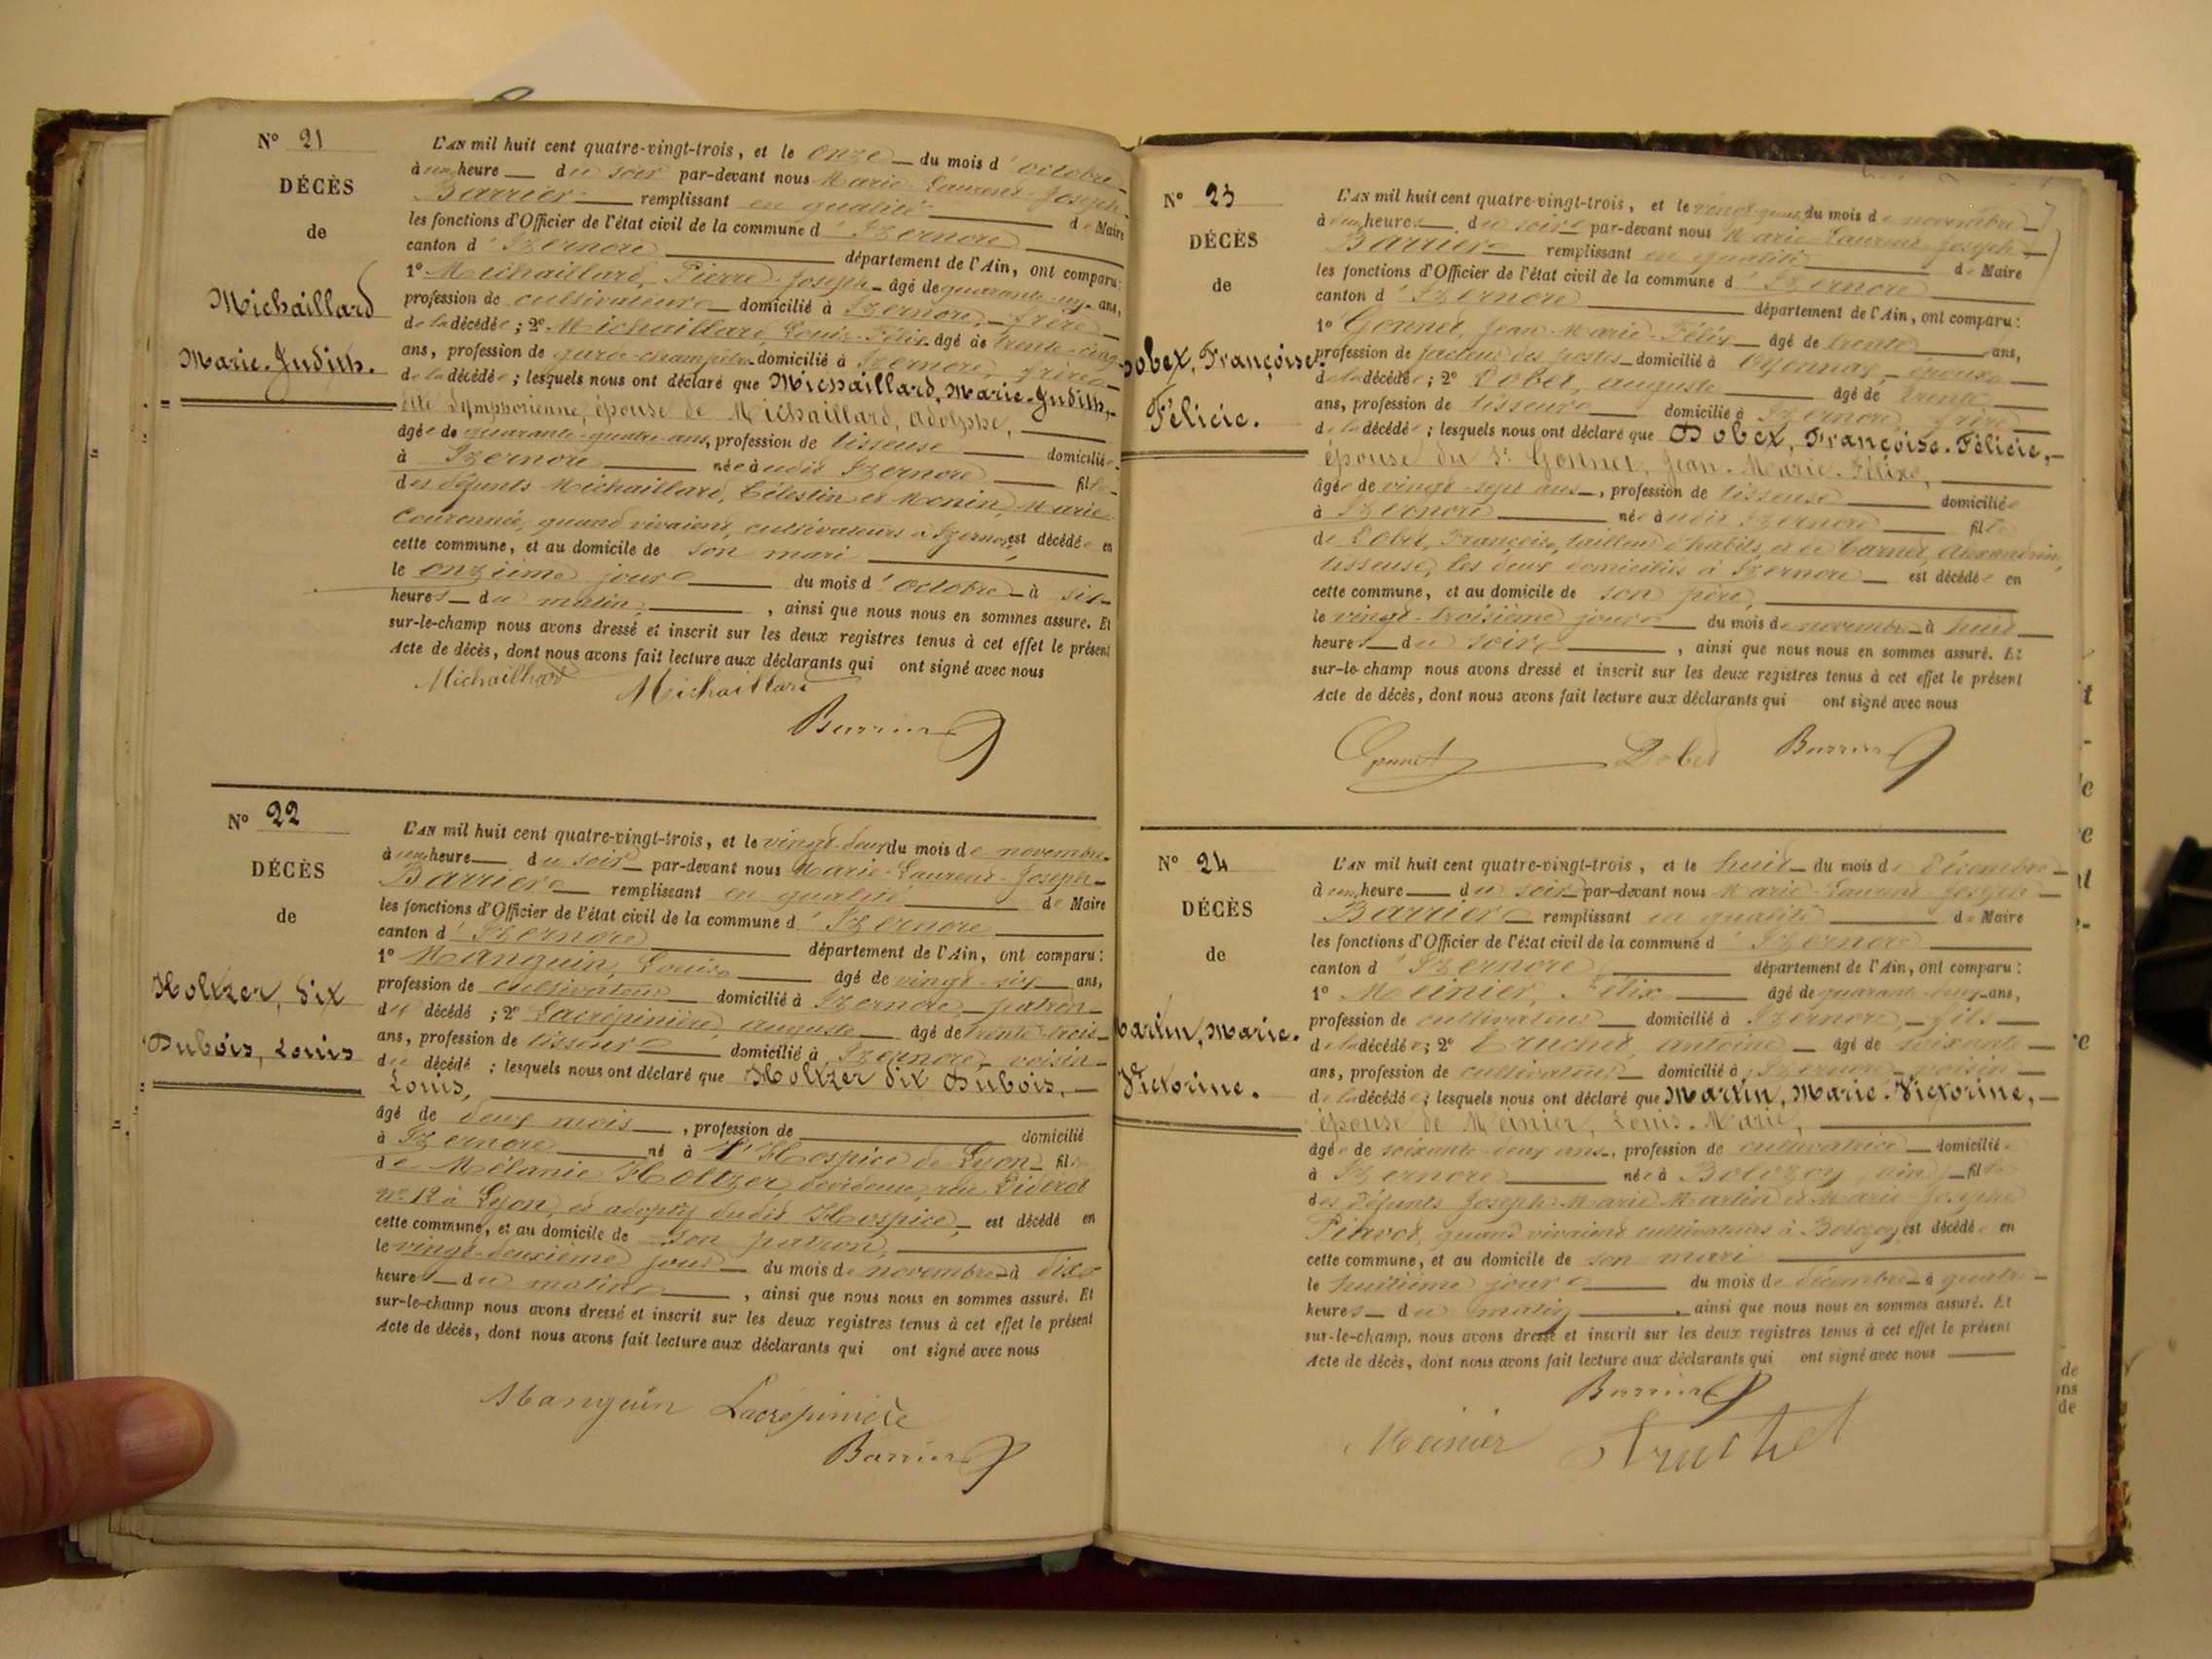 N° 21
DÉCÈS
de
Michaillard
Marie-Judith.
L'AN mil huit cent quatre-vingt-trois, et le onze du mois d'octobre
à une heure du soir par-devant nous Marie-Laurent-Joseph
Barrier remplissant en qualité de Maire
les fonctions d'Officier de l'état civil de la commune d'Izernore
canton d'Izernore département de l'Ain, ont comparu:
1° Michaillard, Pierre-Joseph âgé de quarante-un ans,
profession de cultivateur domicilié à Izernore, frère
de la décédée; 2° Michaillard, Louis-Félix âgé de trente-cinq
ans, profession de garde-champêtre domicilié à Izernore, frère
de la décédée; lesquels nous ont déclaré que Michaillard, Marie-Judith,
dite Symphorienne, épouse de Michaillard, Adolphe,
âgée de quarante-quatre ans, profession de tisseuse domiciliée
à Izernore née audit Izernore fille
des défunts Michaillard, Célestin et Monin, Marie
Couronnée, quand vivaient, cultivateurs à Izernore, est décédée en
cette commune, et au domicile de son mari
le onzième jour du mois d'octobre à six
heures du matin, ainsi que nous nous en sommes assuré. Et
sur-le-champ nous avons dressé et inscrit sur les deux registres tenus à cet effet le présent
Acte de décès, dont nous avons fait lecture aux déclarants qui ont signé avec nous
Michaillard Michaillard
Barrier
N° 22
DÉCÈS
de
Holtzer, dix
Dubois, Louis
L'AN mil huit cent quatre-vingt-trois, et le vingt-deux du mois de novembre
à une heure du soir par-devant nous Marie-Laurent-Joseph
Barrier remplissant en qualité de Maire
les fonctions d'Officier de l'état civil de la commune d'Izernore
canton d'Izernore département de l'Ain, ont comparu:
1° Manguin, Louis âgé de vingt-six ans,
profession de cultivateur domicilié à Izernore, patron
du décédé; 2° Lacrépinière, Auguste âgé de trente-trois
ans, profession de tisseur domicilié à Izernore, voisin
du décédé; lesquels nous ont déclaré que Holtzer dix Dubois,
Louis,
âgé de deux mois, profession de domicilié
à Izernore né à l'Hospice de Lyon fils
de Mélanie Holtzer, devideuse, rue Diderot
n° 12 à Lyon, et adoptif dudit Hospice, est décédé en
cette commune, et au domicile de son patron,
le vingt-deuxième jour du mois de novembre à dix
heures du matin, ainsi que nous nous en sommes assuré. Et
sur-le-champ nous avons dressé et inscrit sur les deux registres tenus à cet effet le présent
Acte de décès, dont nous avons fait lecture aux déclarants qui ont signé avec nous
Manguin Lacrépinière
Barrier
N° 23
DÉCÈS
de
Dobet, Françoise-
Félicie.
L'AN mil huit cent quatre-vingt-trois, et le du mois de novembre
à heures du soir par-devant nous Marie-Laurent-Joseph
Barrier remplissant en qualité de Maire
les fonctions d'Officier de l'état civil de la commune d'Izernore
canton d'Izernore département de l'Ain, ont comparu:
1° Gonnet, Jean-Marie-Félix âgé de trente ans,
profession de facteur des postes domicilié à Oyonnax, époux
de la décédée; 2° Dobet, Auguste âgé de trente
ans, profession de tisseur domicilié à Izernore, frère
de la décédée; lesquels nous ont déclaré que Dobet, Françoise-Félicie,
épouse du Sr Gonnet, Jean-Marie-Félix,
âgée de vingt-sept ans, profession de tisseuse domiciliée
à Izernore née audit Izernore fille
de Dobet, François, tailleur d'habits, et de Carnet, Alexandrine,
tisseuse, les deux domiciliés à Izernore est décédée en
cette commune, et au domicile de son père,
le vingt-troisième jour du mois de novembre à huit
heures du soir, ainsi que nous nous en sommes assuré. Et
sur-le-champ nous avons dressé et inscrit sur les deux registres tenus à cet effet le présent
Acte de décès, dont nous avons fait lecture aux déclarants qui ont signé avec nous
Gonnet Dobet Barrier
N° 24
DÉCÈS
de
Martin, Marie-
Victorine.
L'AN mil huit cent quatre-vingt-trois, et le huit du mois de décembre
à une heure du soir par-devant nous Marie-Laurent-Joseph
Barrier remplissant en qualité de Maire
les fonctions d'Officier de l'état civil de la commune d'Izernore
canton d'Izernore département de l'Ain, ont comparu:
1° Meinier, Félix âgé de quarante-deux ans,
profession de cultivateur domicilié à Izernore, fils
de la décédée; 2° Truchet, Antoine âgé de soixante
ans, profession de cultivateur domicilié à Izernore, voisin
de la décédée; lesquels nous ont déclaré que Martin, Marie-Victorine,
épouse de Meinier, Louis-Marie,
âgée de soixante-deux ans, profession de cultivatrice domiciliée
à Izernore née à Bolozon, Ain, fille
des défunts Joseph-Marie Martin et Marie-Josephe
quand vivaient cultivateurs à Bolozon, est décédée en
cette commune, et au domicile de son mari
le huitième jour du mois de décembre à quatre
heures du matin, ainsi que nous nous en sommes assuré. Et
sur-le-champ, nous avons dressé et inscrit sur les deux registres tenus à cet effet le présent
Acte de décès, dont nous avons fait lecture aux déclarants qui ont signé avec nous
Barrier
Meinier Truchet